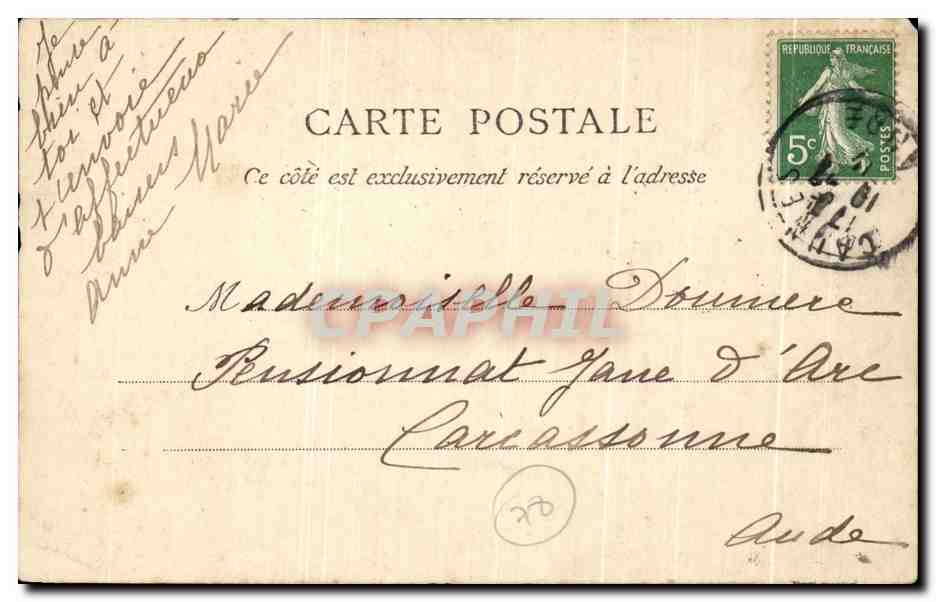 Je
pense
bien à
toi et
t'envoie
d'affectueux
baisers Marie
Anne
REPUBLIQUE FRANÇAISE
5c
POSTES
CARTE POSTALE
Ce côté est exclusivement réservé à l'adresse
Mademoiselle Doumere
CPAPHIL
Pensionnat Jane d'Arc
Carcassonne
Aude